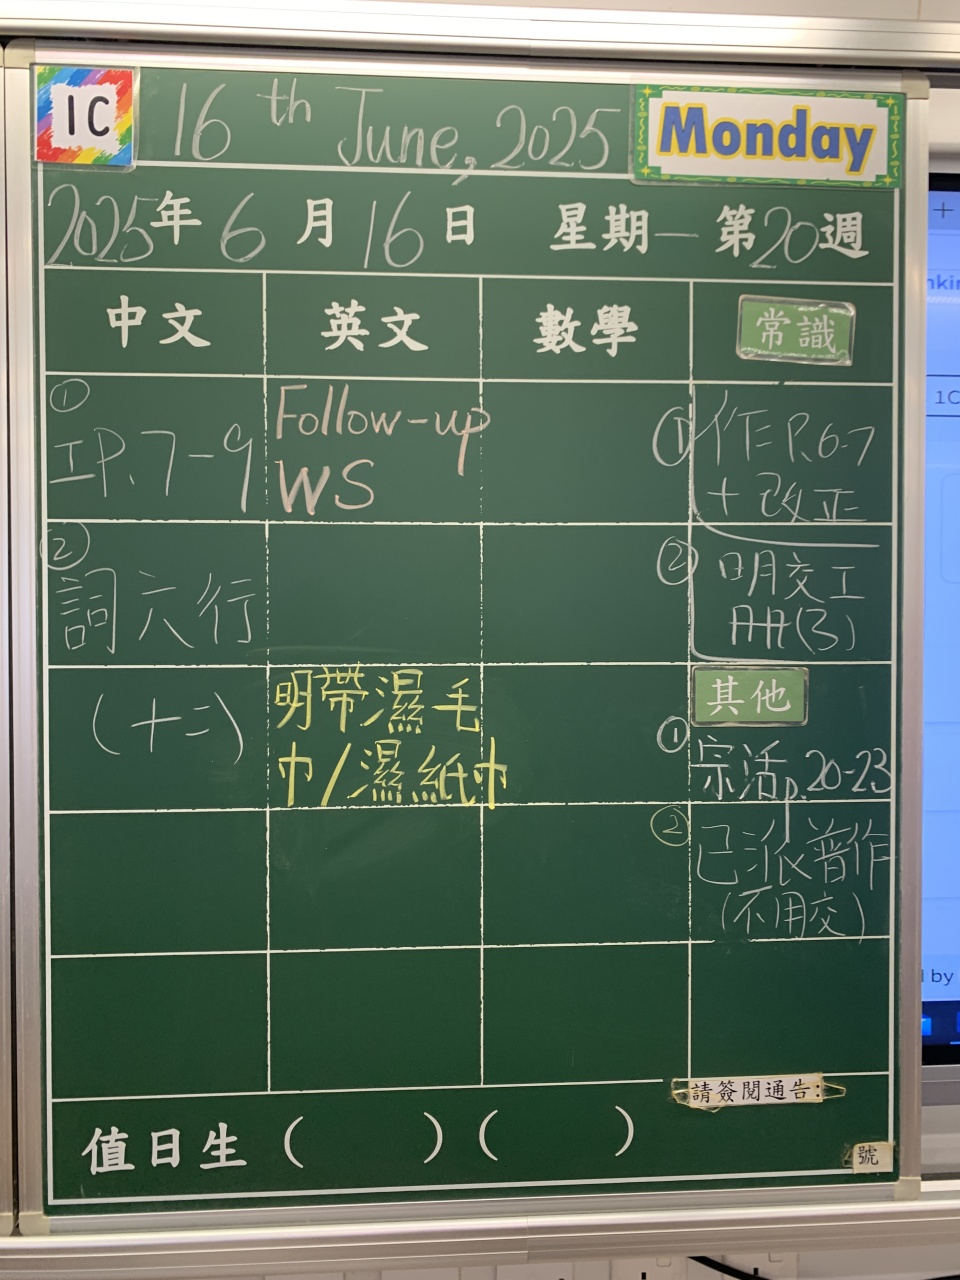 1C
16th June, 2025
Monday
2025年6月16日 星期一 第20週
中文
英文
數學
常識
①
工P.7-9
②
詞六行
(十二)
Follow-up
WS
明帶濕毛
巾/濕紙巾
① 作P.6-7
+改正
② 明交工
冊(3)
其他
① 宗活p.20-23
② 已派普作
(不用交)
請簽閱通告:
值日生 ( ) ( )
號
1C
by